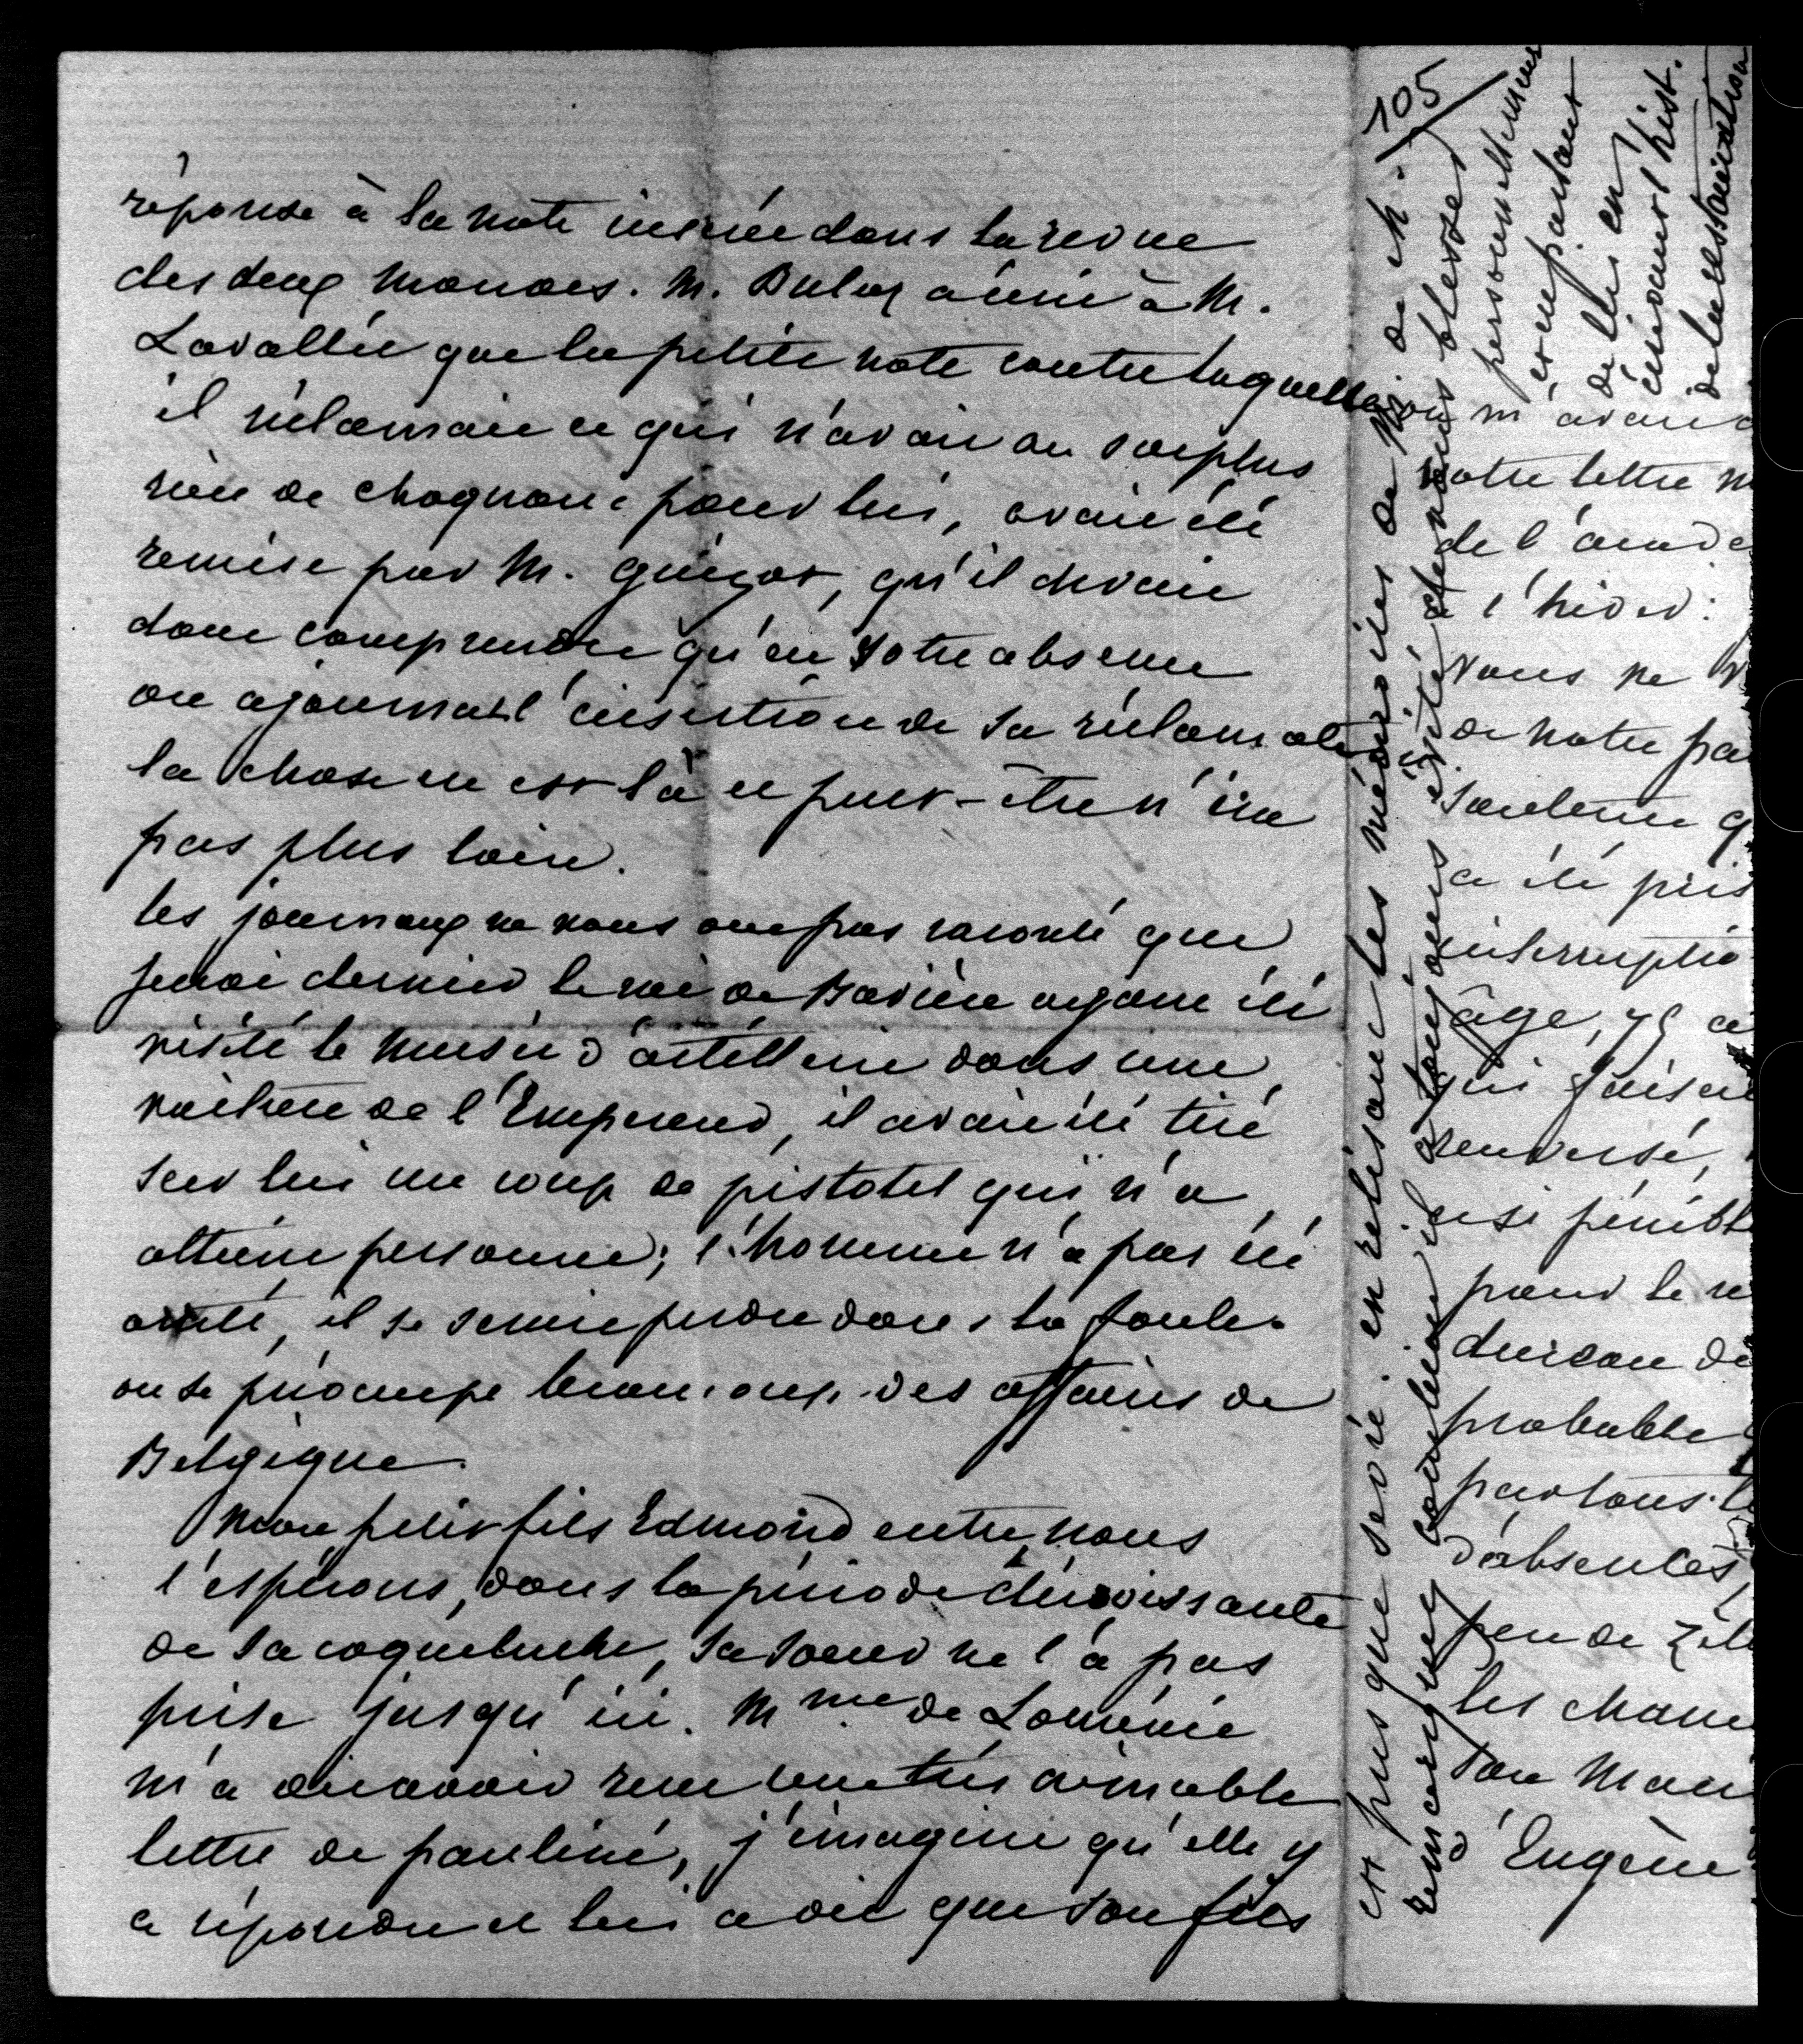 105
réponse à la note insérée dans la revue
des deux mondes. M. Buloz a écrit à M.
Lavallée que la petite note contre laquelle
il réclamait et qui n'avait au surplus
rien de choquant pour lui, avait été
remise par M. Guizot, qu'il devait
donc comprendre qu'en votre absence
on ajournat l'insertion de sa réclamation
la chose en est là et peut-être n'ira
pas plus loin.
les journaux ne nous ont pas raconté que
jeudi dernier le roi de Bavière ayant été
visité le musée d'artillerie dans une
voiture de l'Empereur, il avait été tiré
sur lui un coup de pistolet qui n'a
atteint personne; l'homme n'a pas été
arrêté, il se serait perdu dans la foule.
on se préoccupe beaucoup des affaires de
Belgique.
Mon petit fils Edmond entre, nous
l'espérons, dans la période décroissante
de sa coqueluche, sa soeur ne l'a pas
prise jusqu'ici. Mme de Loménie
m'a dit avoir reçu une très aimable
lettre de pauline, j'imagine qu'elle y
a répondu et lui a dit que son fils
est pris que servi. en relisant les mémoires de
remarquez combien il a toujours évité de nous blesser
personnellement
et en partant
de lui en
écrivant l'hist.
de la restauration
m'avait
votre lettre
de l'acade
l'hiver:
Nous ne
de notre pa
a été pris
interruptio
âge, 75 a
qui faisai
renversé,
si pénibl
pour le re
durcau de
probable
partous
d'absentes,
peu de zèle
les cham
son Mari
d'Eugène